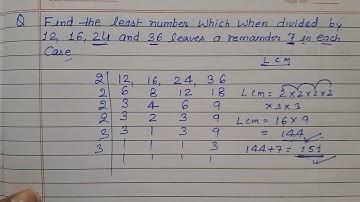 Q Find the least number which when divided by
12, 16, 24 and 36 leaves a remainder 7 in each
Case.
Lcm
2 | 12, 16, 24, 36
2 | 6 8 12 18
2 | 3 4 6 9
2 | 3 2 3 9
3 | 3 1 3 9
3 | 1 1 1 3
1 1 1 1
Lcm = 2×2×2×2
×3×3
Lcm = 16×9
= 144
144+7 = 151